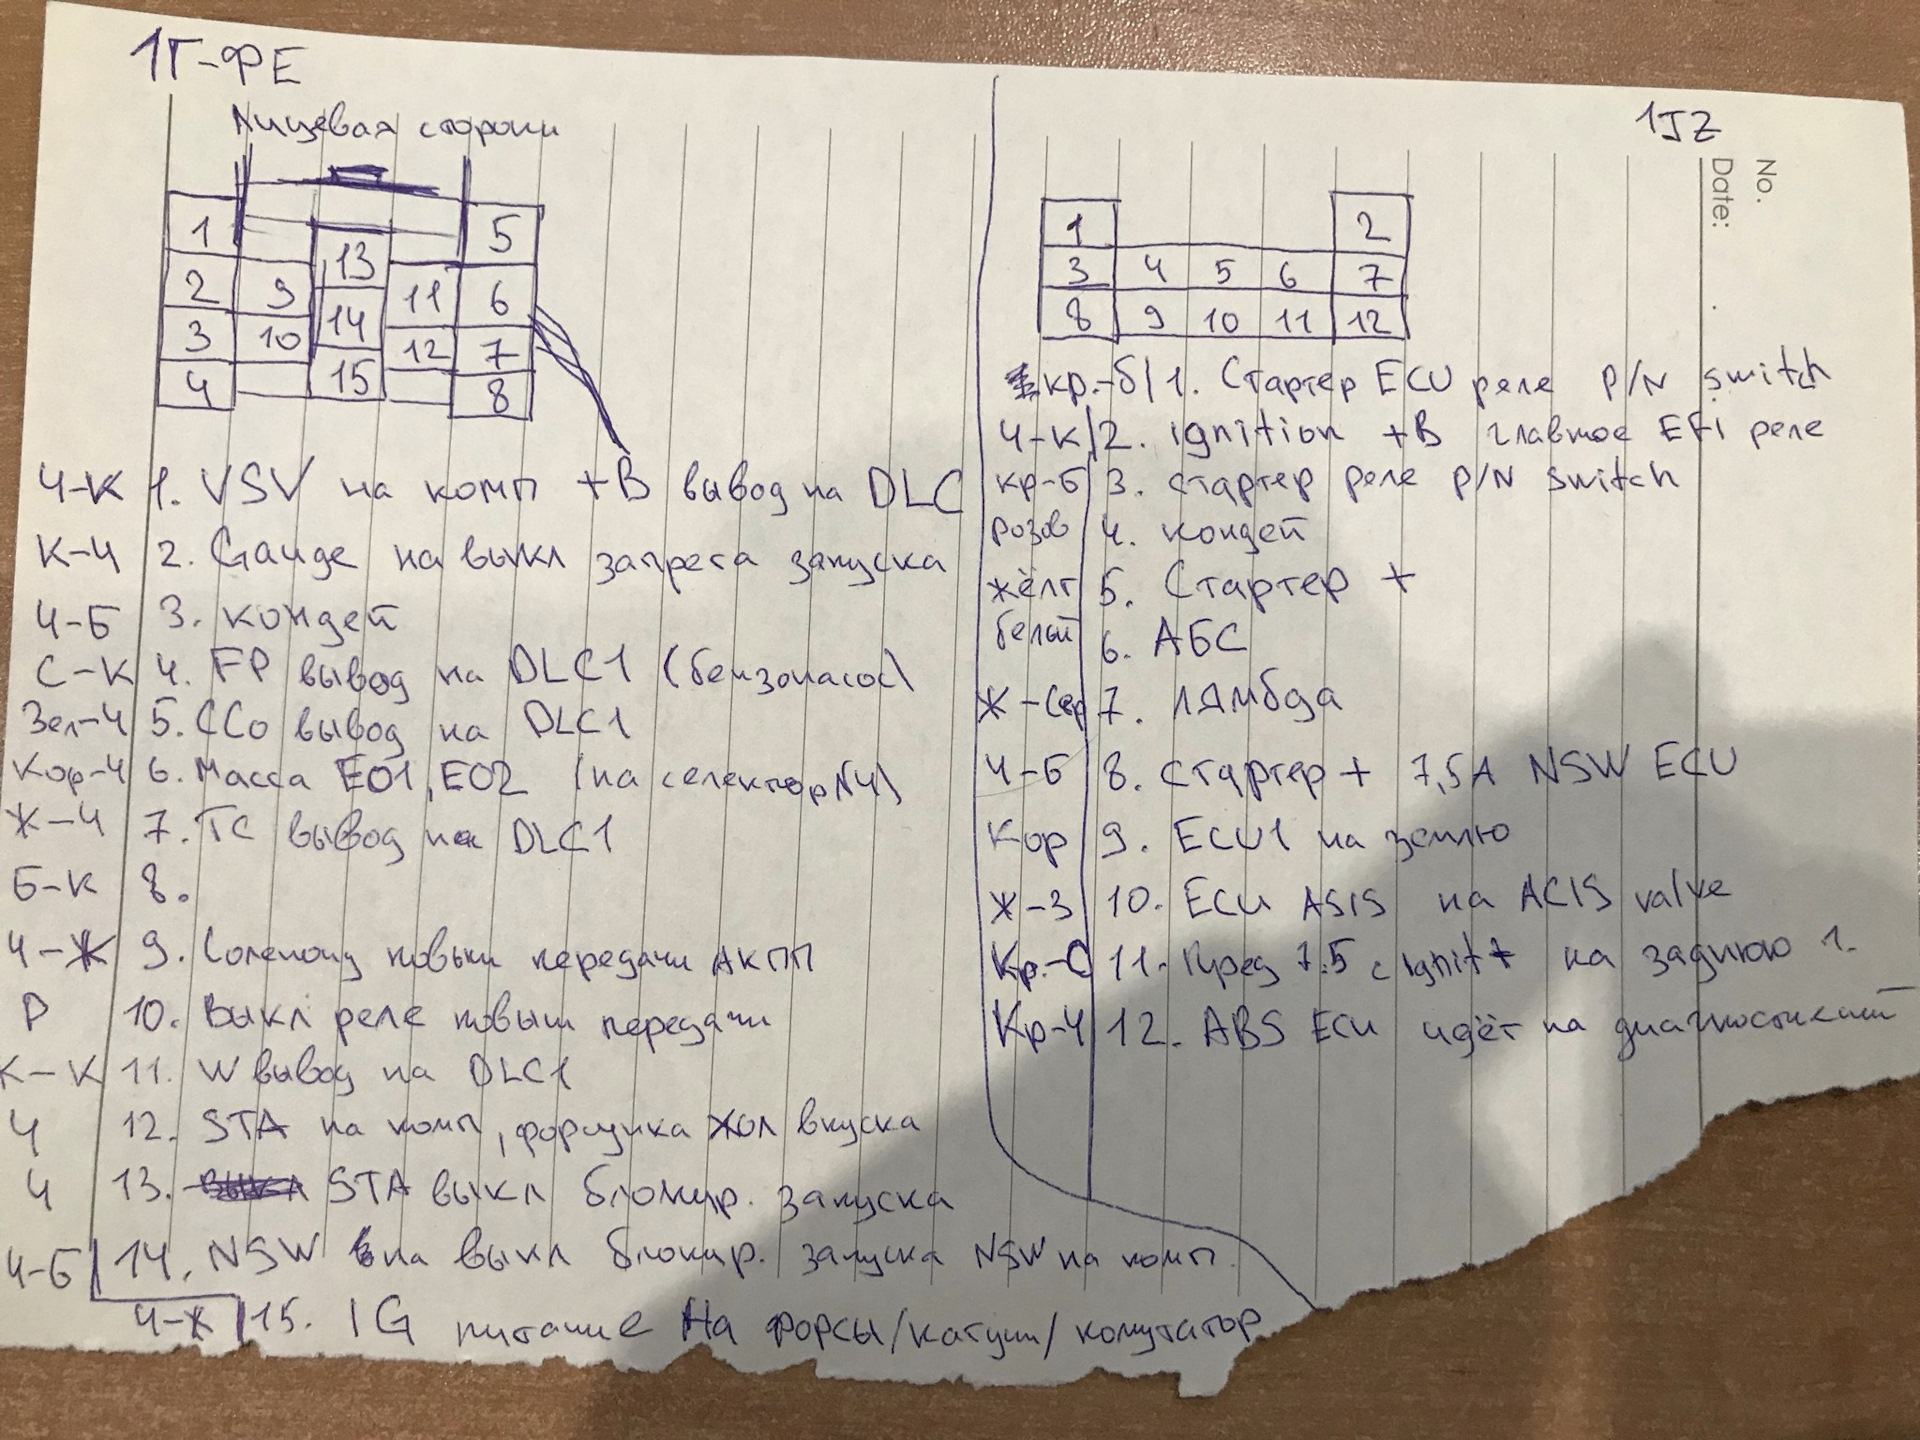 1Г-ФЕ
Лицевая сторони
1 5
13
2 9 11 6
14
3 10 12 7
15
4 8
Ч-К 1. VSV на комп +B вывод на DLC
К-Ч 2. Gauge на выкл запрета запуска
Ч-Б 3. кондей
С-К 4. FP вывод на DLC1 (бензонасос)
Зел-Ч 5. CCo вывод на DLC1
Кор-Ч 6. Масса E01, E02 (на селектор N4)
Ж-Ч 7. TC вывод на DLC1
Б-К 8.
Ч-Ж 9. Соленоид повыш передачи АКПП
Р 10. Выкл реле повыш передачи
К-К 11. W вывод на DLC1
Ч 12. STA на комп, форсунка хол впуска
Ч 13. STA выкл блокир. запуска
Ч-Б 14. NSW на выкл блокир. запуска NSW на комп.
Ч-Ж 15. IG питание На форсы/катуш/комутатор
1JZ
No.
Date:
1 2
3 4 5 6 7
8 9 10 11 12
кр.-б 1. Стартер ECU реле P/N switch
Ч-К 2. ignition +B главное EFi реле
кр-Б 3. стартер реле P/N switch
розов 4. кондей
жёлт 5. Стартер +
белый 6. АБС
Ж-Сер 7. Лямбда
Ч-Б 8. Стартер + 7,5A NSW ECU
Кор 9. ECU1 на землю
Ж-З 10. ECU ASIS на ACIS valve
Кр.-С 11. Пред 7.5 с Ignit+ на заднюю
Кр-Ч 12. ABS ECU идёт на